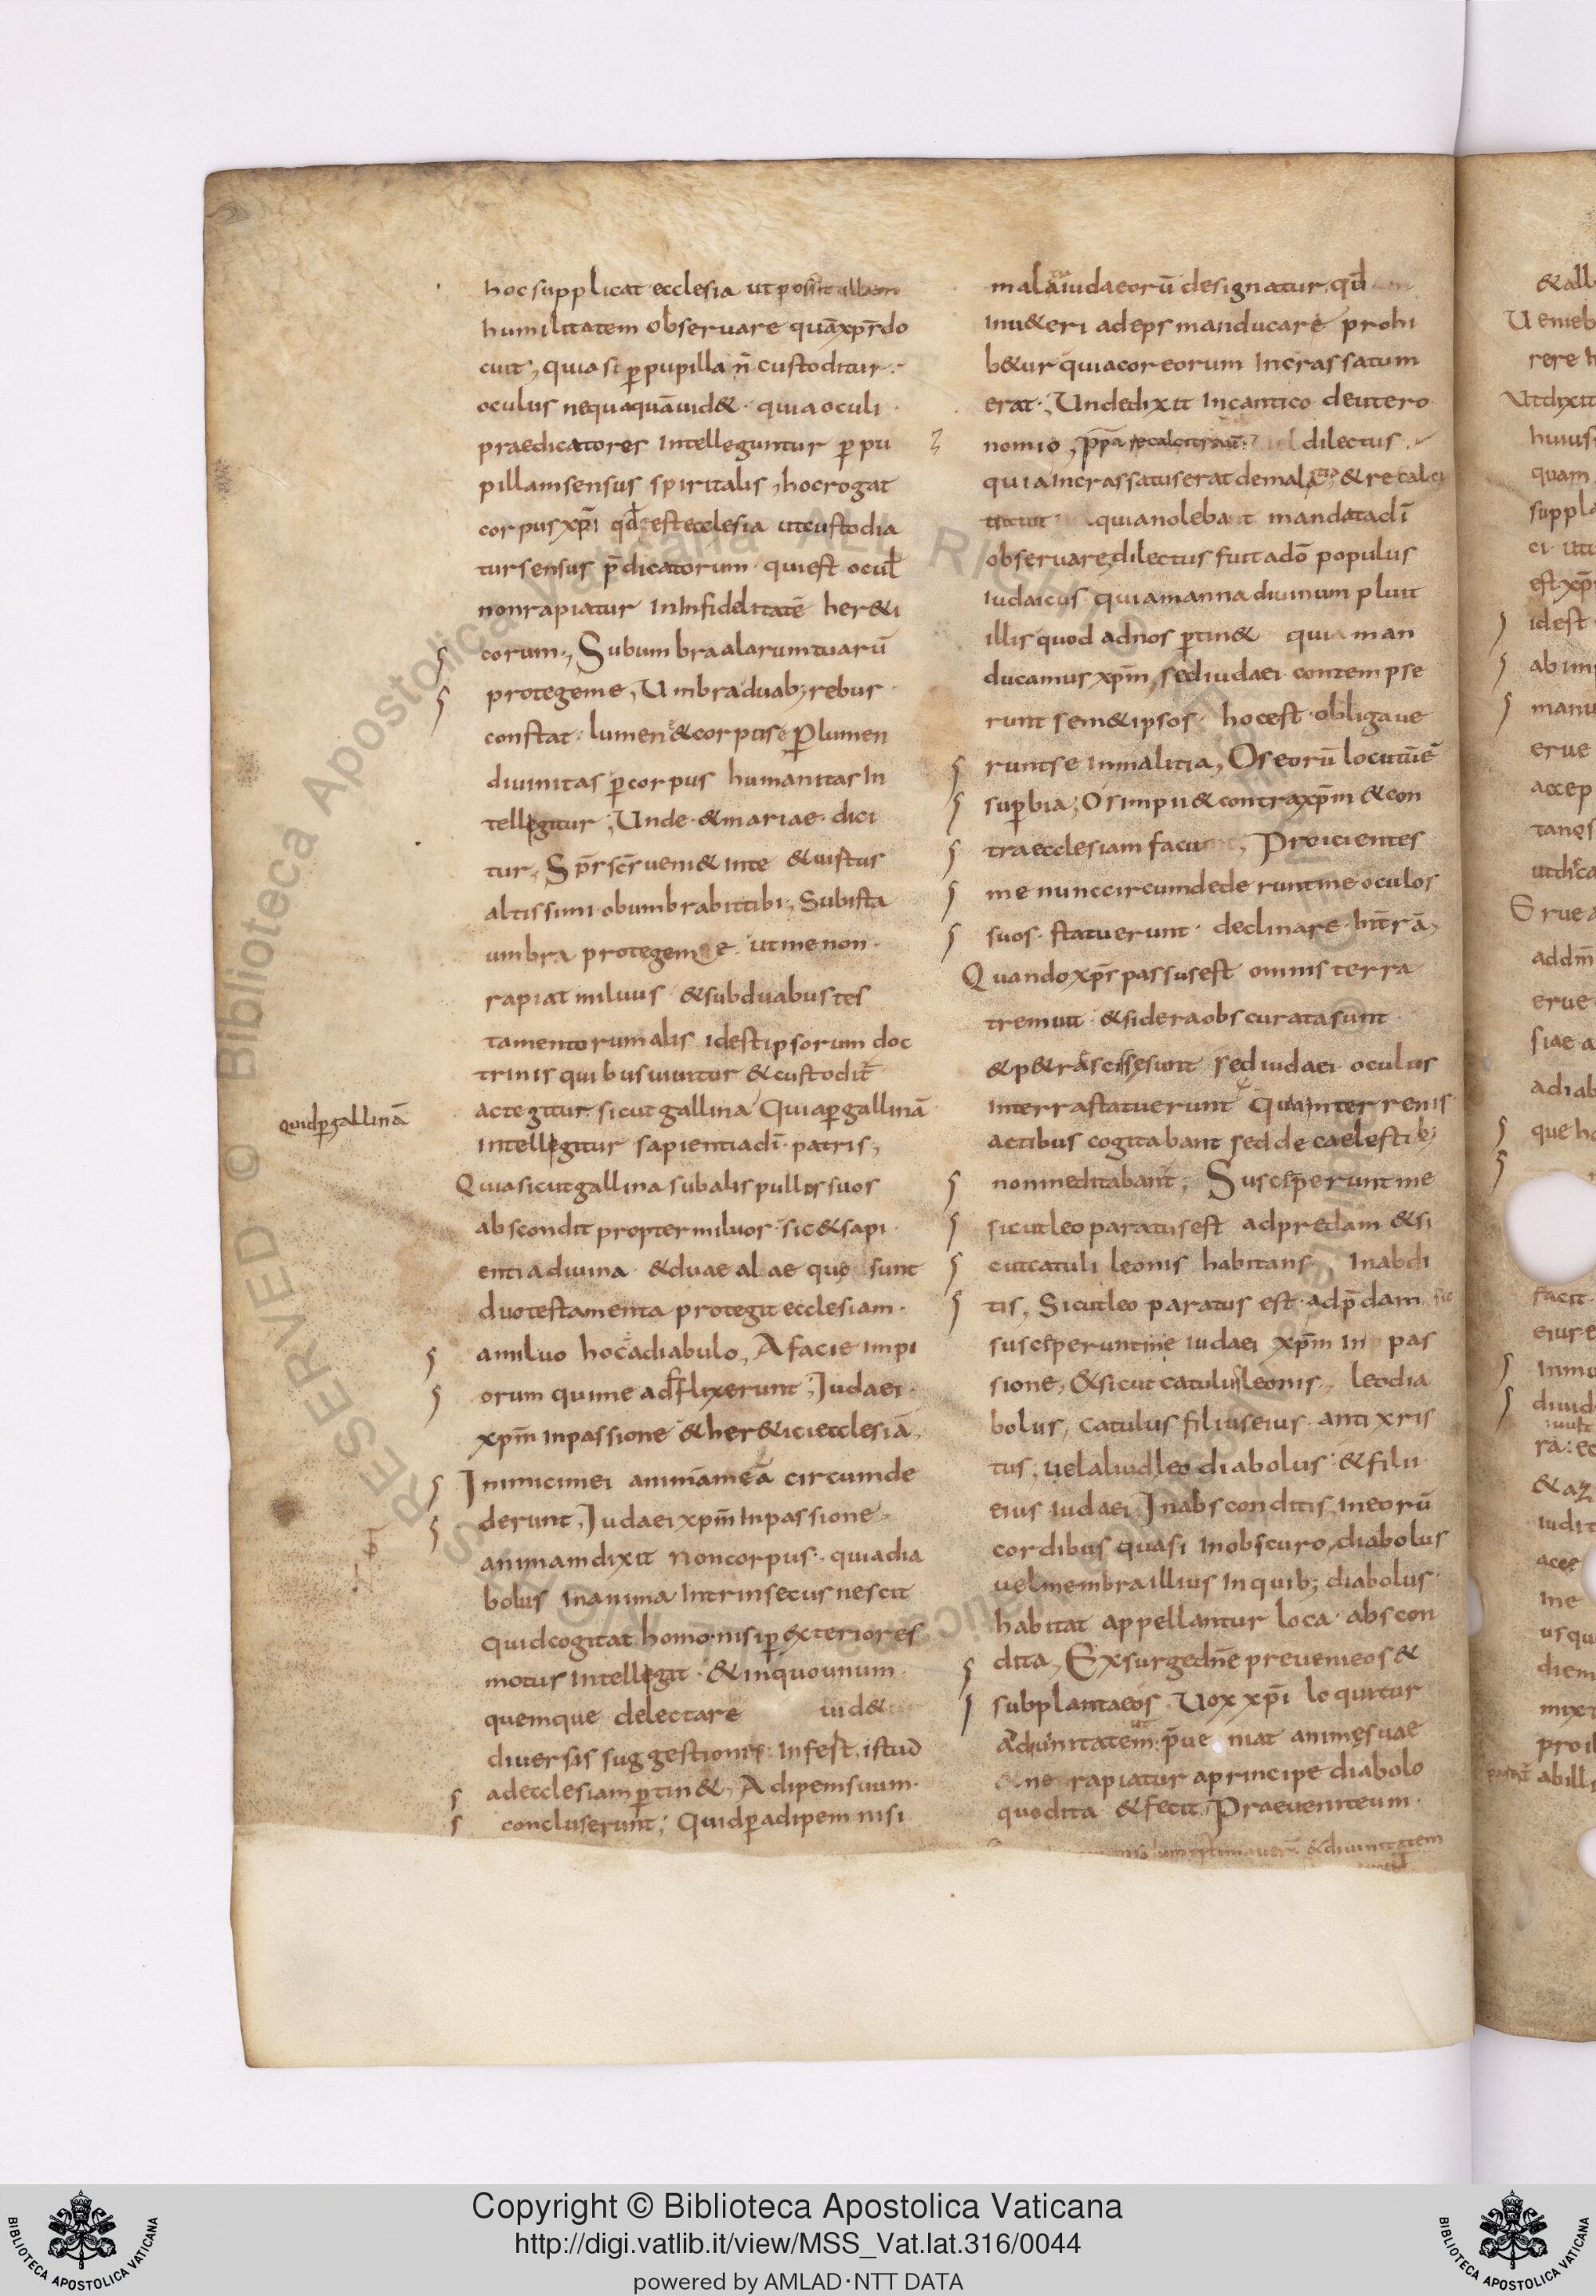 hoc supplicat ecclesia ut possit illam
humilitatem observare quā xpr̄ do
cuit, quia si p̄ pupilla n̄ custoditur.
oculus nequaquā uid&. quia oculi.
praedicatores intelleguntur p̄ pu
pillam sensus spiritalis, hoc rogat
corpus xpī qđ est ecclesia ut custodia
tur sensus p̄dicatorum. qui est ocuł
non rapiatur in infidelitatē her&i
corum., Sub umbra alarum tuarū
protege me, Umbra duab; rebus.
constat. lumen & corpus P̄ lumen
diuinitas p̄ corpus humanitas in
tellegitur; Unde. & mariae. dici
tur, Sp̄s sc̄s ueni& in te & uirtus
altissimi obumbrabit tibi, Sub ista
umbra protege me. ut me non.
rapiat miluus & sub duabus tes
tamentorum alis id est ipsorum doc
trinis quibus uiuitur & custodit̄
ac tegitur. sicut gallina Quia p̄ gallinā
quid p̄ gallinā
intellegitur sapientia dī. patris,
Quia sicut gallina sub alis pullos suos
abscondit propter miluos. sic & sapi
entia diuina & duae alae quę sunt
duo testamenta protegit ecclesiam.
a miluo hoc ē a diabulo, A facie impi
orum qui me adflixerunt; Judaei.
xpm̄ in passione & her&ici ecclesiā,
Inimici mei animā meā circumde
derunt, Judaei xpm̄ in passione
animam dixit non corpus. quia dia
bolus in anima intrinsecus nescit
quid cogitat homo. nisi p̄ exteriores
motus intellegit. & in quo unum
quemque delectare uid&
diuersis suggestionis. infest. istud
ad ecclesiam p̄tin&, Adipem suum.
concluserunt; Quid p̄ adipem nisi
mala iudaeorū designatur, qđ
in u&eri adeps manducare prohi
b&ur quia cor eorum incrassatum
erat. Unde dixit in cantico deutero
nomio, dilectus.
quia incrassatus erat de & recalci
quia noleba t mandata dī
observare, dilectus fuit ad d̄o populus
iudaicus quia manna diuinum pluit
illis quod ad nos p̄tin& quia man
ducamus xpm̄, sed iudaei contempse
runt sem&ipsos. hoc est. obligaue
runt se in malitia, Os eorū locutū ē
sup̄bia; Os impii & contra xpm̄ & con
tra ecclesiam faciu , Proicientes
me nunc circumdederunt me oculos
suos. statuerunt. declinare. int̄rā,
Quando xpr̄ passus est omnis terra
tremuit. & sidera obscurata sunt
& p&rae scissę sunt sed iudaei oculos
in terra statuerunt Quia in terrenis
actibus cogitabant sed de caelestib;
non meditabant̄; Suscep̄erunt me
sicut leo paratus est ad predam & si
cut catuli leonis habitans. In abdi
tis, Sicut leo paratus est. ad p̄dam sic
suscep̄erunt me iudaei xpm̄ in pas
sione, & sicut catulus leonis, leo dia
bolus, catulus filius eius. anti xris
tus; uel aliud leo diabolus. & filii.
eius iudaei, In absconditis, in eorū
cordibus quasi in obscuro, diabolus
uel membra illius in quib; diabolus.
habitat appellantur loca. abscon
dita, Exsurge dn̄e preueni eos &
subplanta eos. Uox xpī loquitur
ad unitatem. p̄ue niat animę suae
& ne rapiatur a principe diabolo
quod ita & fecit, Praeuenit eum.
& diuinitatem
Copyright © Biblioteca Apostolica Vaticana
http://digi.vatlib.it/view/MSS_Vat.lat.316/0044
powered by AMLAD·NTT DATA